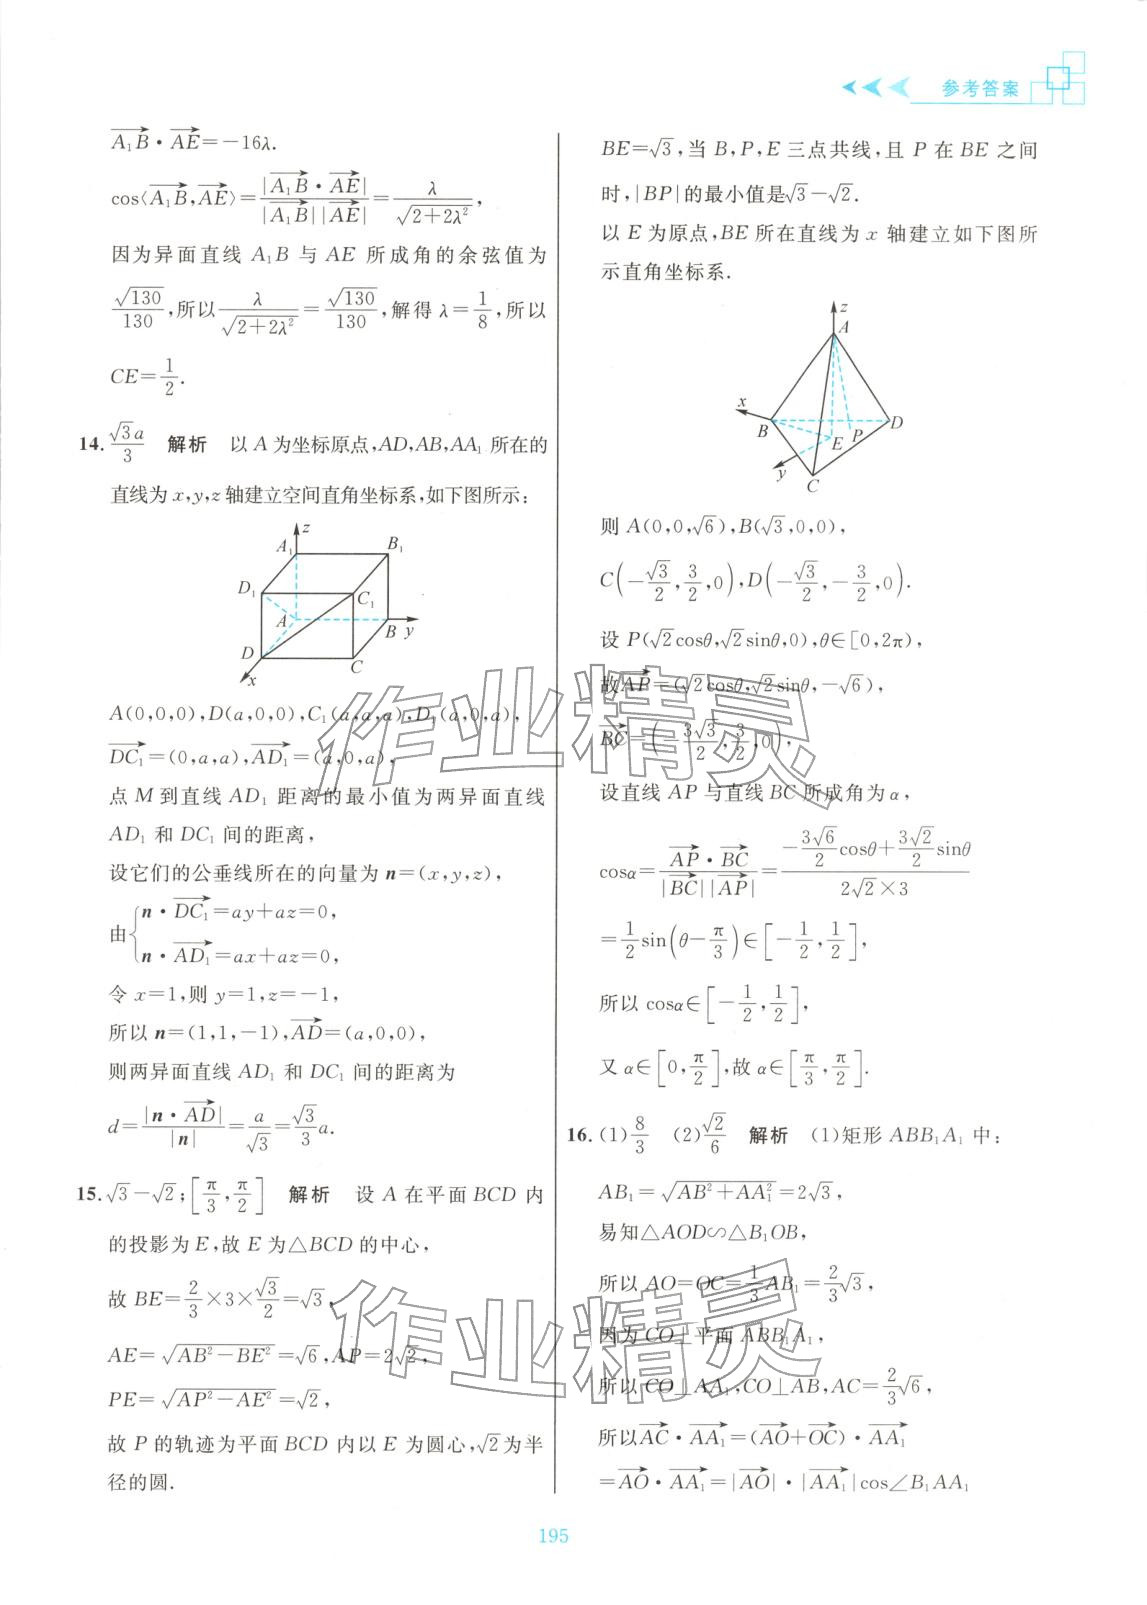 参考答案
$\overrightarrow{A_1B}\cdot\overrightarrow{AE}=-16\lambda.$
$\cos\langle\overrightarrow{A_1B},\overrightarrow{AE}\rangle=\frac{|\overrightarrow{A_1B}\cdot\overrightarrow{AE}|}{|\overrightarrow{A_1B}||\overrightarrow{AE}|}=\frac{\lambda}{\sqrt{2+2\lambda^2}},$
因为异面直线 $A_1B$ 与 $AE$ 所成角的余弦值为
$\frac{\sqrt{130}}{130}$,所以$\frac{\lambda}{\sqrt{2+2\lambda^2}}=\frac{\sqrt{130}}{130}$,解得 $\lambda=\frac{1}{8}$,所以
$CE=\frac{1}{2}.$
14. $\frac{\sqrt{3}a}{3}$ 解析 以 A 为坐标原点,$AD,AB,AA_1$ 所在的
直线为 x,y,z 轴建立空间直角坐标系,如下图所示:
z
A₁ B₁
D₁ C₁
A B y
D C
x
$A(0,0,0),D(a,0,0),C_1(a,a,a),D_1(a,0,a),$
$\overrightarrow{DC_1}=(0,a,a),\overrightarrow{AD_1}=(a,0,a),$
点 M 到直线 $AD_1$ 距离的最小值为两异面直线
$AD_1$ 和 $DC_1$ 间的距离,
设它们的公垂线所在的向量为 $\boldsymbol{n}=(x,y,z)$,
由$\begin{cases}\boldsymbol{n}\cdot\overrightarrow{DC_1}=ay+az=0,\\\boldsymbol{n}\cdot\overrightarrow{AD_1}=ax+az=0,\end{cases}$
令 $x=1$,则 $y=1,z=-1$,
所以 $\boldsymbol{n}=(1,1,-1),\overrightarrow{AD}=(a,0,0),$
则两异面直线 $AD_1$ 和 $DC_1$ 间的距离为
$d=\frac{|\boldsymbol{n}\cdot\overrightarrow{AD}|}{|\boldsymbol{n}|}=\frac{a}{\sqrt{3}}=\frac{\sqrt{3}}{3}a.$
15. $\sqrt{3}-\sqrt{2};\left[\frac{\pi}{3},\frac{\pi}{2}\right]$ 解析 设 A 在平面 BCD 内
的投影为 E,故 E 为△BCD 的中心,
故 $BE=\frac{2}{3}\times3\times\frac{\sqrt{3}}{2}=\sqrt{3}$,
$AE=\sqrt{AB^2-BE^2}=\sqrt{6},AP=2\sqrt{2},$
$PE=\sqrt{AP^2-AE^2}=\sqrt{2},$
故 P 的轨迹为平面 BCD 内以 E 为圆心,$\sqrt{2}$为半
径的圆.
$BE=\sqrt{3}$,当 B,P,E 三点共线,且 P 在 BE 之间
时,|BP|的最小值是$\sqrt{3}-\sqrt{2}$.
以 E 为原点,BE 所在直线为 x 轴建立如下图所
示直角坐标系.
z
A
x
B D
E P
y
C
则 $A(0,0,\sqrt{6}),B(\sqrt{3},0,0),$
$C\left(-\frac{\sqrt{3}}{2},\frac{3}{2},0\right),D\left(-\frac{\sqrt{3}}{2},-\frac{3}{2},0\right).$
设 $P(\sqrt{2}\cos\theta,\sqrt{2}\sin\theta,0),\theta\in[0,2\pi),$
故$\overrightarrow{AP}=(\sqrt{2}\cos\theta,\sqrt{2}\sin\theta,-\sqrt{6}),$
$\overrightarrow{BC}=\left(-\frac{3\sqrt{3}}{2},\frac{3}{2},0\right),$
设直线 AP 与直线 BC 所成角为 α,
$\cos\alpha=\frac{\overrightarrow{AP}\cdot\overrightarrow{BC}}{|\overrightarrow{BC}||\overrightarrow{AP}|}=\frac{-\frac{3\sqrt{6}}{2}\cos\theta+\frac{3\sqrt{2}}{2}\sin\theta}{2\sqrt{2}\times3}$
$=\frac{1}{2}\sin\left(\theta-\frac{\pi}{3}\right)\in\left[-\frac{1}{2},\frac{1}{2}\right],$
所以 $\cos\alpha\in\left[-\frac{1}{2},\frac{1}{2}\right],$
又 $\alpha\in\left[0,\frac{\pi}{2}\right]$,故 $\alpha\in\left[\frac{\pi}{3},\frac{\pi}{2}\right].$
16. (1)$\frac{8}{3}$ (2)$\frac{\sqrt{2}}{6}$ 解析 (1)矩形 $ABB_1A_1$ 中:
$AB_1=\sqrt{AB^2+AA_1^2}=2\sqrt{3},$
易知△AOD∽△$B_1OB$,
所以 $AO=OC=\frac{1}{3}AB_1=\frac{2}{3}\sqrt{3}$,
因为 CO⊥平面 $ABB_1A_1$,
所以 $CO\perp AA_1,CO\perp AB,AC=\frac{2}{3}\sqrt{6},$
所以$\overrightarrow{AC}\cdot\overrightarrow{AA_1}=(\overrightarrow{AO}+\overrightarrow{OC})\cdot\overrightarrow{AA_1}$
$=\overrightarrow{AO}\cdot\overrightarrow{AA_1}=|\overrightarrow{AO}|\cdot|\overrightarrow{AA_1}|\cos\angle B_1AA_1$
作业精灵
作业精灵
195